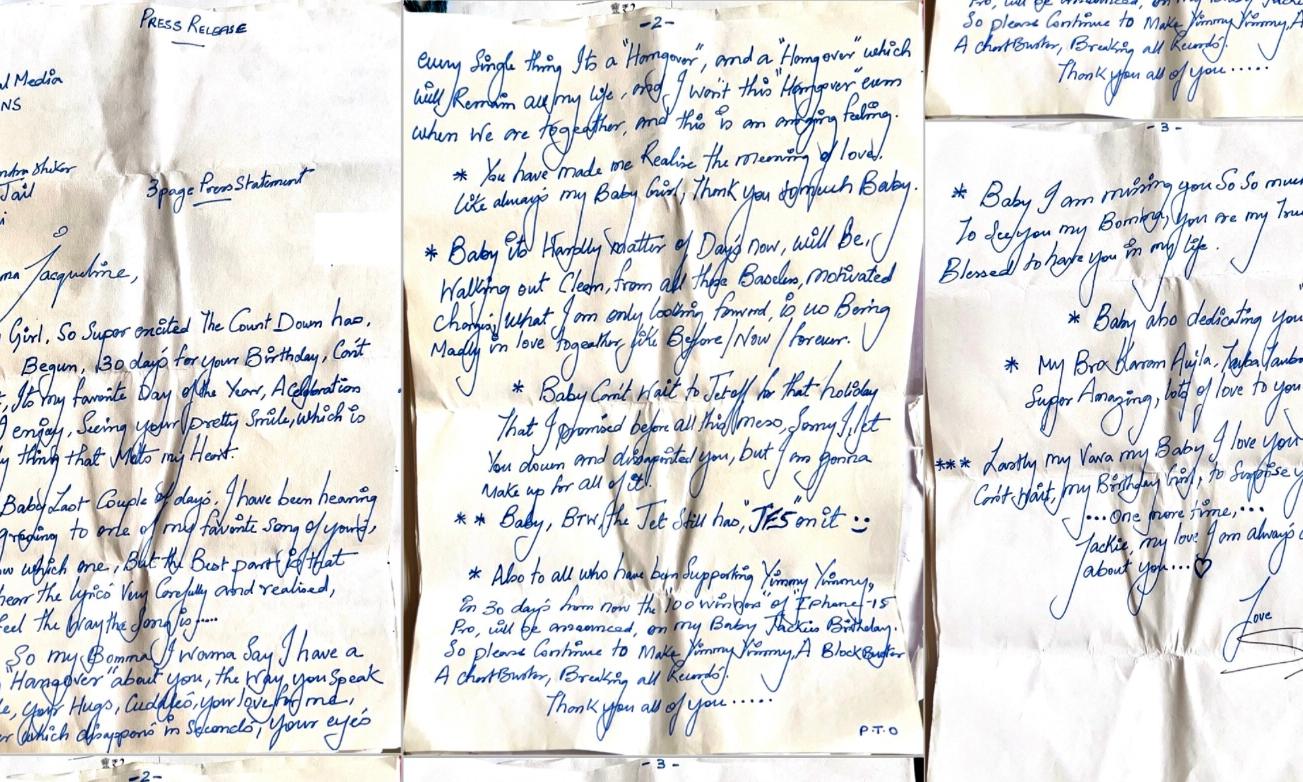 PRESS RELEASE
al Media
NS
ndra Shekar
Jail
i
3 page Press Statement
ma Jacqueline,
Girl, So Super excited The Count Down has,
Begun, 30 days for your Birthday, Can't
, Its my favorite Day of the Year, A Celebration
I enjoy, Seeing your pretty Smile, which is
y thing that Melts my Heart.
Baby Last Couple of days, I have been hearing
to one of my favorite Song of yours,
ow which one, But the Best part is that
hear the lyrics Very Carefully and realised,
feel the way the Song is....
So my Bomma I wanna Say I have a
"Hangover" about you, the way you Speak
e, your Hugs, Cuddles, your love for me,
er which disappears in Seconds, your eyes
-2-
-2-
every Single thing Its a "Hangover", and a "Hangover" which
will Remain all my life, and I want this "Hangover" even
when we are togeather, and this is an amazing feeling.
* You have made me Realise the meaning of love.
Like always my Baby Girl, Thank you so much Baby.
* Baby its Hardly matter of Days now, will Be,
Walking out Clean, from all these Baseless, motivated
Charges, what I am only looking forward, is us Being
Madly in love togeather like Before / Now / forever.
* Baby Can't Wait to Jet off for that holiday
That I promised before all this mess, Sorry I, let
You down and disapointed you, but I am gonna
Make up for all of it.
* * Baby, BTW, the Jet Still has, "JFS" on it :)
* Also to all who have been Supporting Yimmy Yimmy,
in 30 days from now the 100 winners "of" Iphone-15
Pro, will be announced, on my Baby Jackies Birthday.
So please Continue to Make Yimmy Yimmy, A BlockBuster
A chartBuster, Breaking all Records.
Thank you all of you.....
P.T.O
-3-
Pro, will be announced, on my Baby Jackie
So please Continue to Make Yimmy Yimmy, A
A chartBuster, Breaking all Records.
Thank you all of you.....
-3-
* Baby I am missing you So So muc
To See you my Bomma, you are my True
Blessed to have you in my life.
* Baby also dedicating you
* My Bro Karan Aujla, Tauba Tauba
Super Amazing, lots of love to you
*** Lastly my Vava my Baby I love you
Can't wait, my Birthday Girl, to Surprise y
...One more time,...
Jackie, my love I am always c
about you...♡
Love